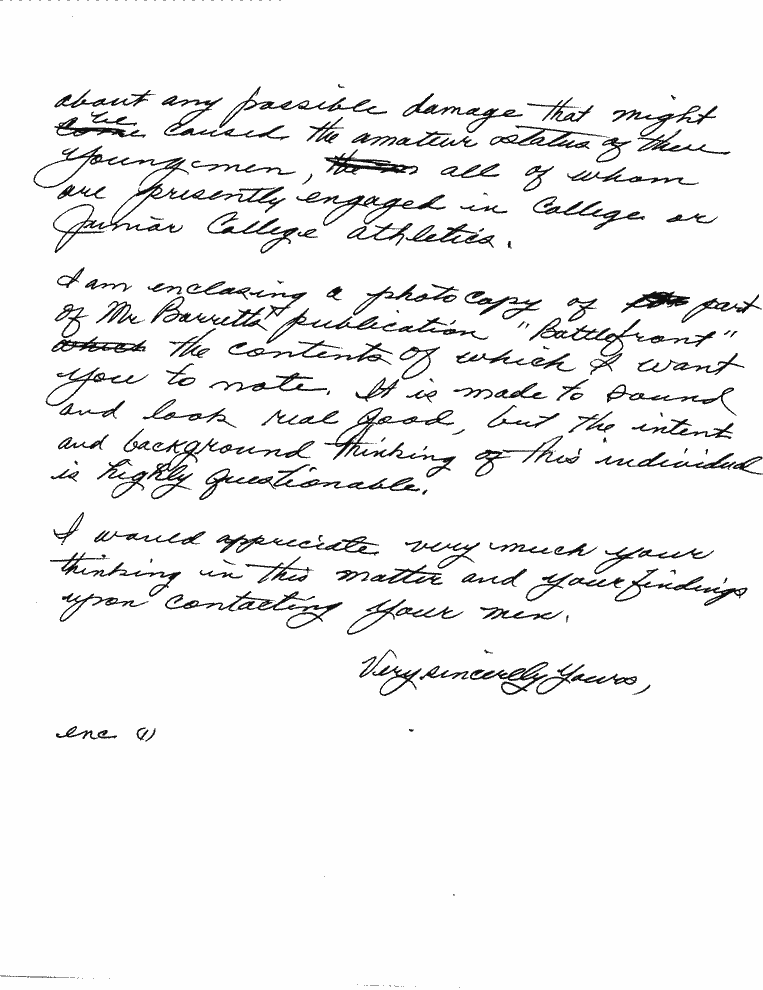 about any possible damage that might
be caused the amateur status of these
young men, all of whom
are presently engaged in College or
Junior College athletics.
I am enclosing a photocopy of part
of Mr Barrett's publication "Battlefront"
which the contents of which I want
you to note. It is made to sound
and look real good, but the intent
and background thinking of this individual
is highly questionable.
I would appreciate very much your
thinking in this matter and your findings
upon contacting your men.
Very sincerely yours,
enc (1)